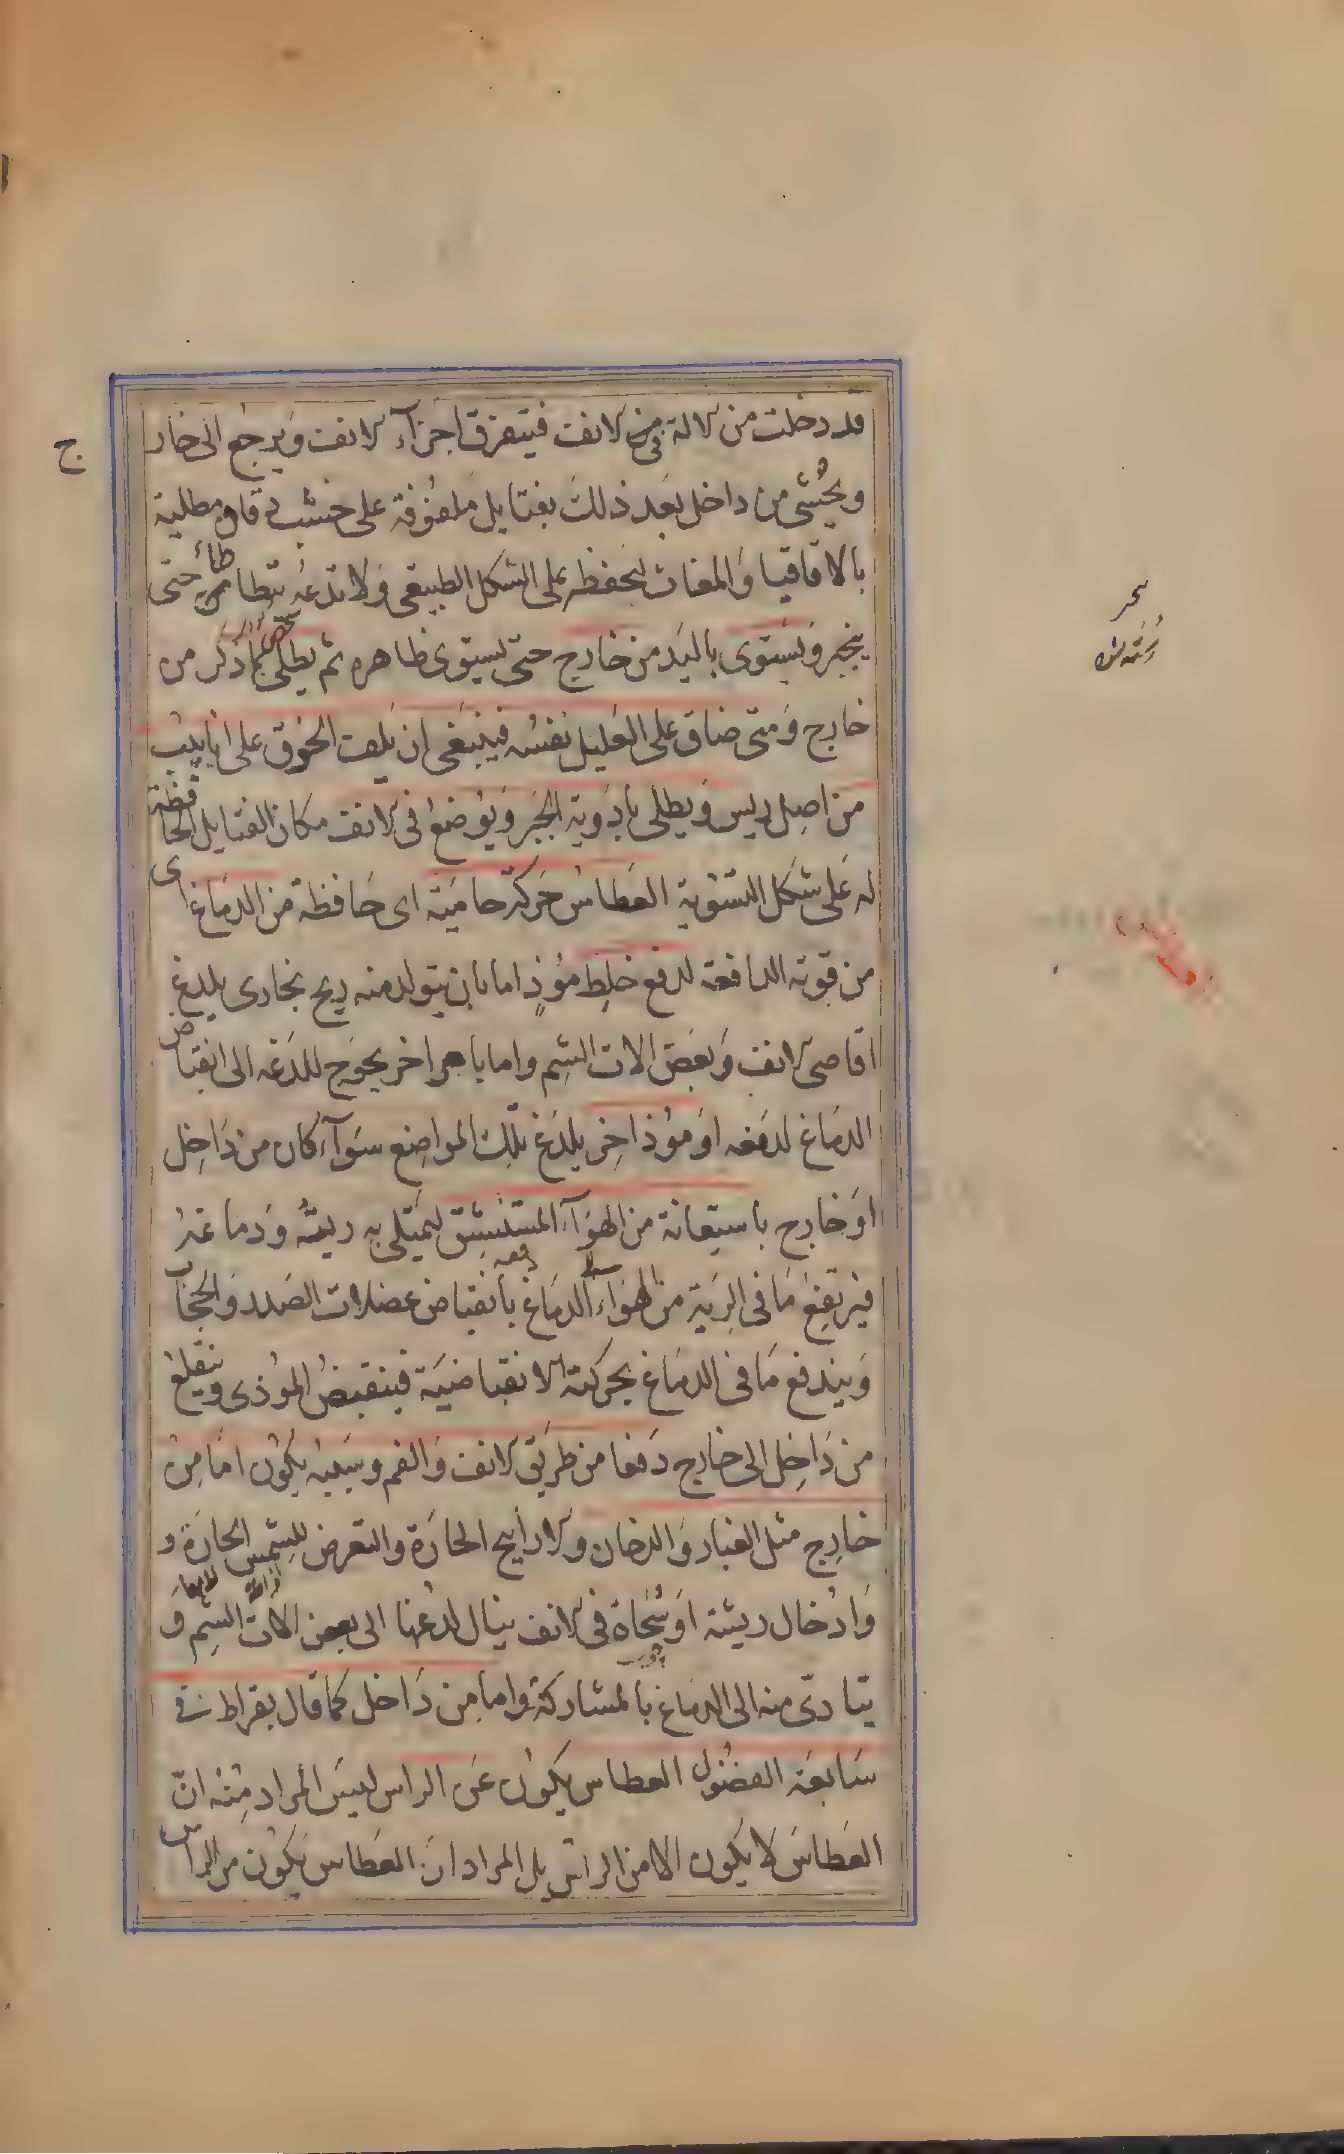 قد دخلت من الالة في الانف فيتفرق اجزآء الانف ويرجع الى خارج
ويحشى من داخل بعد ذلك بفتايل ملفوفة على خشب دقاق مطلية
بالاقاقيا والمغاث لتحفظه على الشكل الطبيعى ولا تدعه يتطامن حتى
ينجبر ويستوى باليد من خارج حتى يستوى ظاهره ثم يطلى بما ذكر من
خارج ومتى ضاق على العليل نفسه فينبغى ان يلف الخرق على انابيب
من اصل ريس ويطلى بادوية الجبر ويوضع فى الانف مكان الفتايل الحافظة
له على شكل التسوية العطاس حركة حامية اى حافظة من الدماغ اى
من قوته الدافعة لدفع خلط موذٍ اما بان يتولد منه ريح بخارى يلدغ
اقاصى الانف وبعض الات الشم واما بامر اخر يحوج للدغه الى انقباض
الدماغ لدفعه او موذ اخر يلدغ تلك المواضع سوآء كان من داخل
او خارج باستعانة من الهوآء المستنشق ليمتلى به ريته ودماغه
فيرتفع ما فى الرية من الهوآء الى الدماغ دفعه بانقباض عضلات الصدر والحجاب
ويندفع ما فى الدماغ بحركته الانقباضية فينقبض الموذى وينقلع
من داخل الى خارج دفعا من طريق الانف والفم وسببه يكون اما من
خارج مثل الغبار والدخان والارايح الحارة والتعرض للشمس الحارة و
وادخال ريشة او سحاة فى الانف ينال لدغها الى بعض الات الشم و
يتادى منه الى الدماغ بالمشاركة واما من داخل كما قال بقراط فى
سابعة الفصول العطاس يكون عن الراس ليس المراد منه ان
العطاس لا يكون الا من الراس بل المراد ان العطاس يكون من الراس